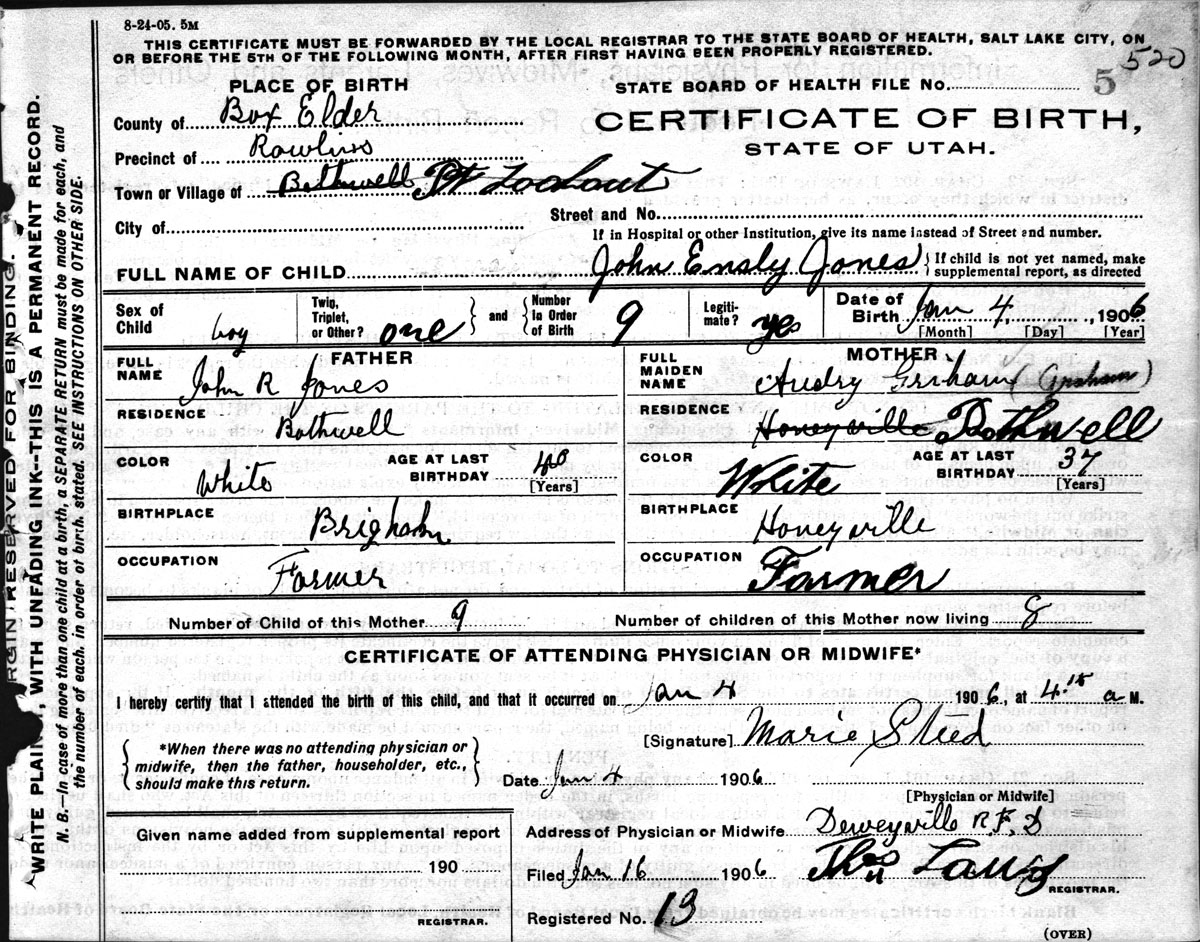 8-24-05. 5M
THIS CERTIFICATE MUST BE FORWARDED BY THE LOCAL REGISTRAR TO THE STATE BOARD OF HEALTH, SALT LAKE CITY, ON
OR BEFORE THE 5TH OF THE FOLLOWING MONTH, AFTER FIRST HAVING BEEN PROPERLY REGISTERED.
520
PLACE OF BIRTH
STATE BOARD OF HEALTH FILE No. 5
County of Box Elder
CERTIFICATE OF BIRTH,
STATE OF UTAH.
Precinct of Rawlins
Town or Village of Bothwell Pt Lookout
Street and No.
City of
If in Hospital or other Institution, give its name instead of Street and number.
FULL NAME OF CHILD John Ensly Jones { If child is not yet named, make
supplemental report, as directed
Sex of Child boy
Twin, Triplet, or Other? one
} and { Number In Order of Birth 9
Legiti- mate? yes
Date of Birth Jan 4, 1906
[Month] [Day] [Year]
FATHER
FULL NAME John R Jones
MOTHER
FULL MAIDEN NAME Audry Griham (Graham)
RESIDENCE Bothwell
RESIDENCE Honeyville Bothwell
COLOR White AGE AT LAST BIRTHDAY 40 [Years]
COLOR White AGE AT LAST BIRTHDAY 37 [Years]
BIRTHPLACE Brigham
BIRTHPLACE Honeyville
OCCUPATION Farmer
OCCUPATION Farmer
Number of Child of this Mother 9 Number of children of this Mother now living 8
CERTIFICATE OF ATTENDING PHYSICIAN OR MIDWIFE*
I hereby certify that I attended the birth of this child, and that it occurred on Jan 4 1906, at 4 15 a M.
[Signature] Marie Steed
{ *When there was no attending physician or
midwife, then the father, householder, etc.,
should make this return. }
Date Jan 4 1906
[Physician or Midwife]
Given name added from supplemental report
190
REGISTRAR.
Address of Physician or Midwife Deweyville R.F.D
Filed Jan 16 1906
REGISTRAR.
Registered No. 13
(OVER)
RGIN RESERVED FOR BINDING.
WRITE PLAINLY, WITH UNFADING INK--THIS IS A PERMANENT RECORD.
N. B.--In case of more than one child at a birth, a SEPARATE RETURN must be made for each, and
the number of each, in order of birth, stated. SEE INSTRUCTIONS ON OTHER SIDE.